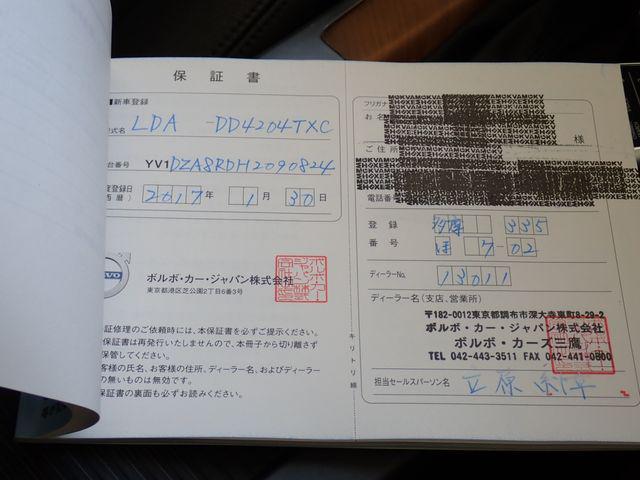 保証書
■新車登録
式名 LDA -DD4204TXC
台番号 YV1DZA8RDH2090824
度登録日
西暦) 2017年 1月 30日
ボルボ・カー・ジャパン株式会社
東京都港区芝公園2丁目6番3号
証修理のご依頼時には、本保証書を必ずご提示ください。
保証書は再発行いたしませんので、本冊子から切り離さず
保管してください。
客様の氏名、お客様の住所、ディーラー名、およびディーラー
の無いものは無効です。
保証書の裏面も必ずお読みください。
キリトリ線
フリガナ
お名
様
ご住所
電話番号
登録 多摩 335
番号 ほ 7-02
ディーラーNo. 13011
ディーラー名(支店、営業所)
〒182-0012東京都調布市深大寺東町8-29-2
ボルボ・カー・ジャパン株式会社
ボルボ・カーズ三鷹
TEL 042-443-3511 FAX 042-441-0800
担当セールスパーソン名